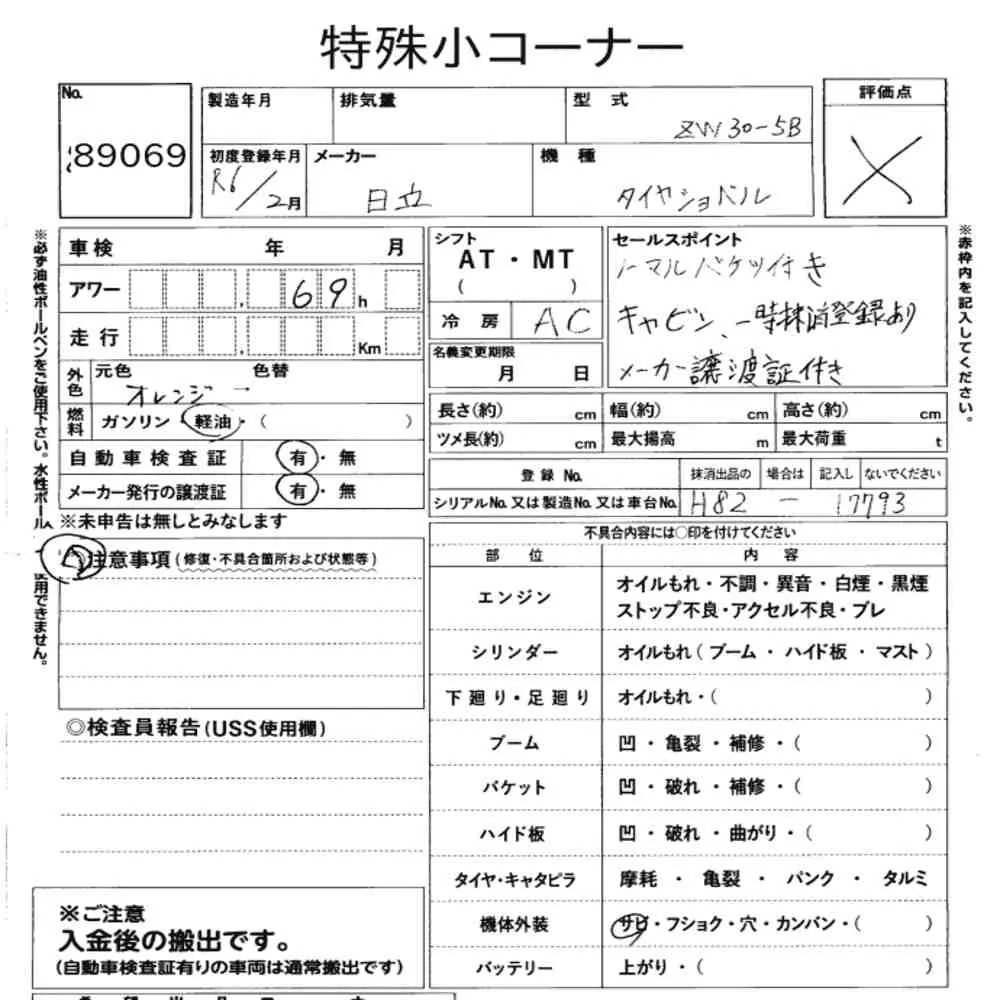 特殊小コーナー
No.
89069
製造年月
排気量
型 式
ZW30-5B
評価点
初度登録年月
R6/2月
メーカー
日立
機 種
タイヤショベル
※必ず油性ボールペンをご使用下さい。水性ボール
使用できません。
※赤枠内を記入してください。
車検 年 月
アワー , 69h
走行 , Km
外色 元色 色替
オレンジ ー
燃料 ガソリン・軽油・( )
自動車検査証 有・無
メーカー発行の譲渡証 有・無
※未申告は無しとみなします
シフト
AT・MT
( )
冷房 AC
名義変更期限
月 日
セールスポイント
ノーマルバケツ付き
キャビン、一時抹消登録あり
メーカー譲渡証付き
長さ(約) cm 幅(約) cm 高さ(約) cm
ツメ長(約) cm 最大揚高 m 最大荷重 t
登録No. 抹消出品の 場合は 記入し ないでください
シリアルNo.又は製造No.又は車台No. H82 - 17793
注意事項(修復・不具合箇所および状態等)
◎検査員報告(USS使用欄)
不具合内容には○印を付けてください
部 位 内 容
エンジン オイルもれ・不調・異音・白煙・黒煙
ストップ不良・アクセル不良・ブレ
シリンダー オイルもれ(ブーム・ハイド板・マスト)
下廻り・足廻り オイルもれ・( )
ブーム 凹・亀裂・補修・( )
バケット 凹・破れ・補修・( )
ハイド板 凹・破れ・曲がり・( )
タイヤ・キャタピラ 摩耗・亀裂・パンク・タルミ
機体外装 サビ・フショク・穴・カンバン・( )
バッテリー 上がり・( )
※ご注意
入金後の搬出です。
(自動車検査証有りの車両は通常搬出です)